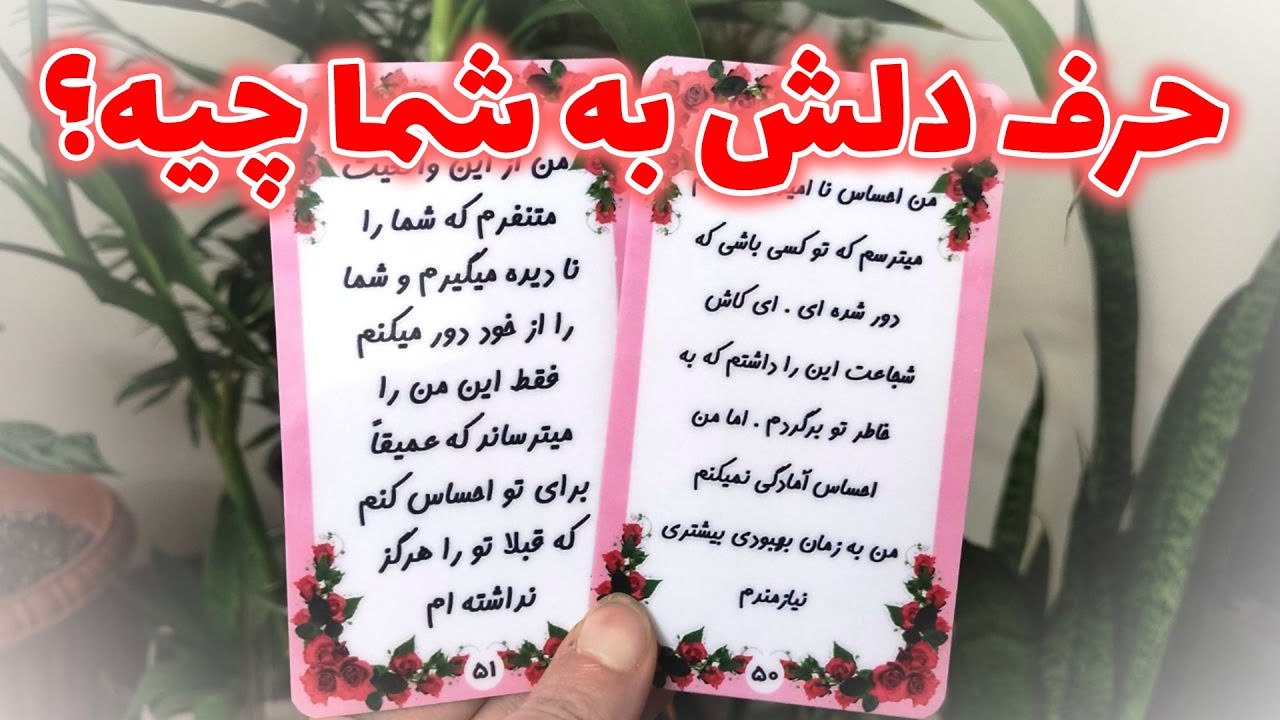 حرف دلش به شما چیه؟
من احساس نا
میترسم که تو کسی باشی که
دور شده ای . ای کاش
شجاعت این را داشتم که به
خاطر تو برگردم . اما من
احساس آمادگی نمیکنم
من به زمان بهبودی بیشتری
نیازمندم
۵۰
من از این
متنفرم که شما را
نا دیده میگیرم و شما
را از خود دور میکنم
فقط این من را
میترساند که عمیقاً
برای تو احساس کنم
که قبلا تو را هرگز
نداشته ام
۵۱